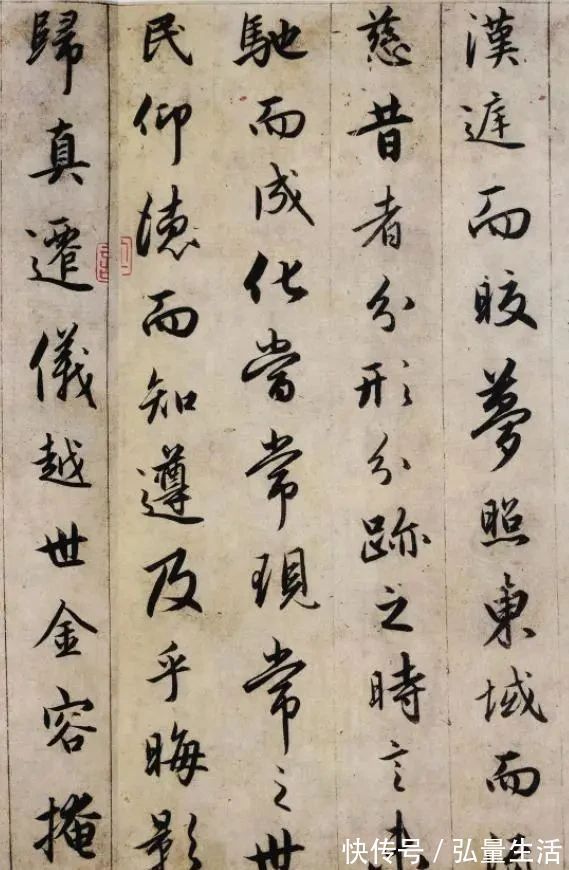 漢遅而晈夢照東域而流
慈昔者分形分跡之時言未
馳而成化當常現常之世
民仰徳而知遵及乎晦影
歸真遷儀越世金容掩
快传号/弘量生活